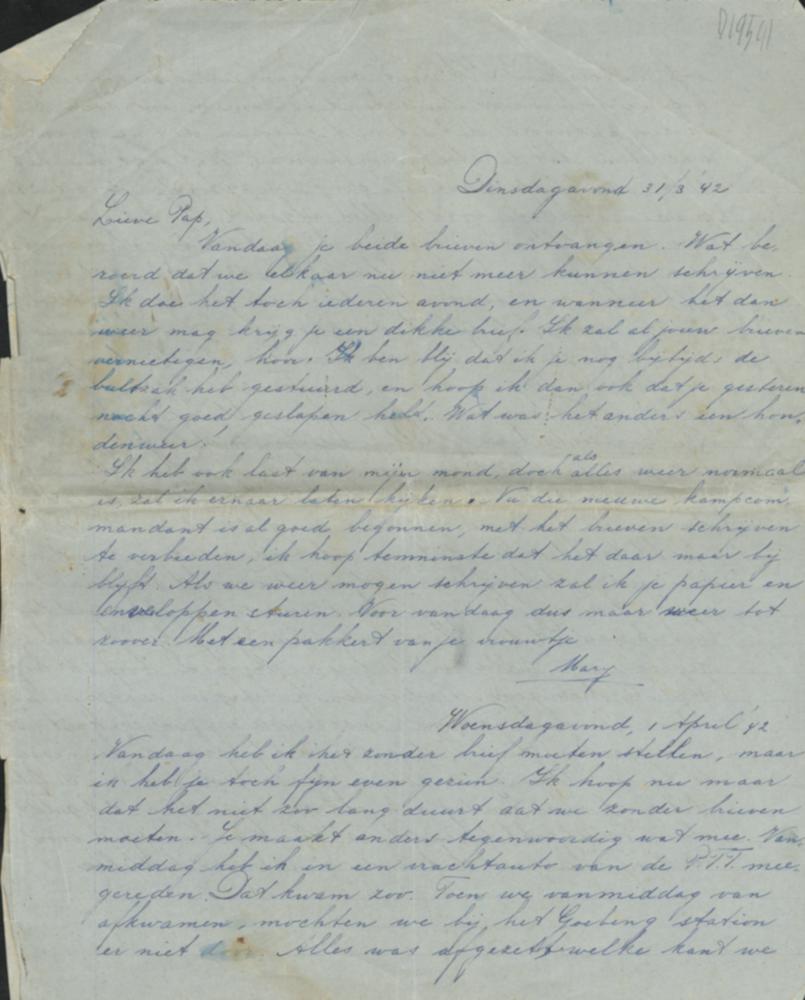 D19541
Dinsdagavond 31/3 '42
Lieve Pap,
Vandaag je beide brieven ontvangen. Wat be-
roerd dat we elkaar nu niet meer kunnen schrijven.
Ik doe het toch iederen avond, en wanneer het dan
weer mag krijg je een dikke brief. Ik zal al jouw brieven
vernietigen, hoor. Ik ben blij dat ik je nog bijtijds de
bultzak heb gestuurd, en hoop ik dan ook dat je gisteren
nacht goed geslapen hebt. Wat was het anders een hon-
denweer!
Ik heb ook last van mijn mond, doch als alles weer normaal
is, zal ik ernaar laten kijken. Nu die nieuwe kampcom-
mandant is al goed begonnen, met het brieven schrijven
te verbieden, ik hoop temninste dat het daar maar bij
blijft. Als we weer mogen schrijven zal ik je papier en
enveloppen sturen. Voor vandaag dus maar weer tot
zoover. Met een pakkert van je vrouwtje
Mary
Woensdagavond, 1 April '42
Vandaag heb ik het zonder brief moeten stellen, maar
ik heb je toch fijn even gezien. Ik hoop nu maar
dat het niet zoo lang duurt dat we zonder brieven
moeten. Je maakt anders tegenwoordig wat mee. Van-
middag heb ik in een vrachtauto van de P.T.T. mee-
gereden. Dat kwam zoo. Toen we vanmiddag van
afkwamen, mochten we bij het Goebeng station
er niet door. Alles was afgezet welke kant we